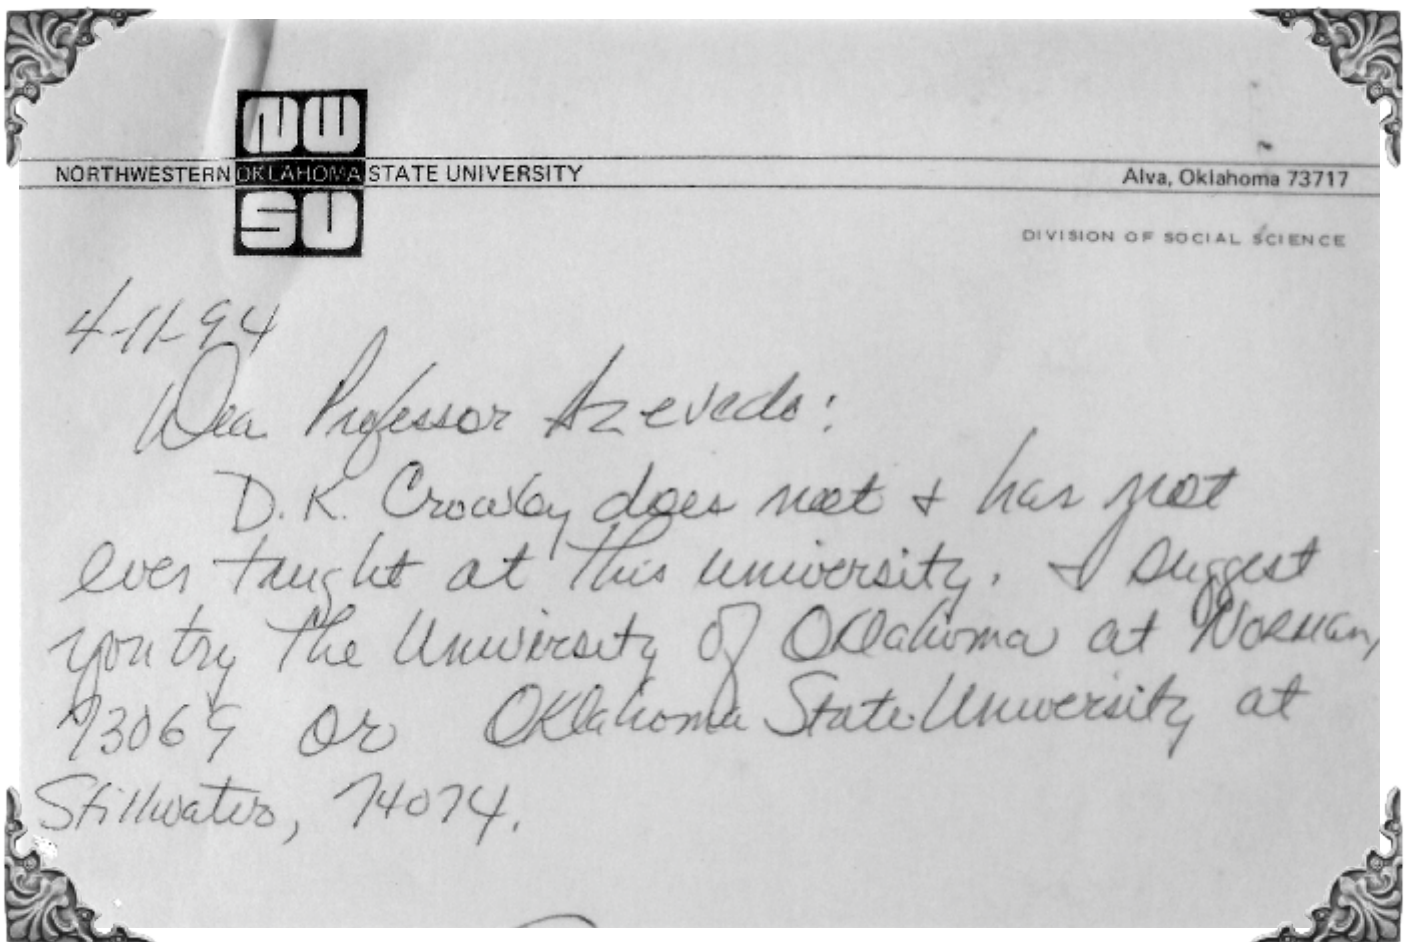 NW
NORTHWESTERN OKLAHOMA STATE UNIVERSITY Alva, Oklahoma 73717
SU
DIVISION OF SOCIAL SCIENCE
4-11-94
Dear Professor Azevedo:
D.K. Crowley does not & has not
ever taught at this university. I suggest
you try the University of Oklahoma at Norman,
73069 or Oklahoma State University at
Stillwater, 74074.